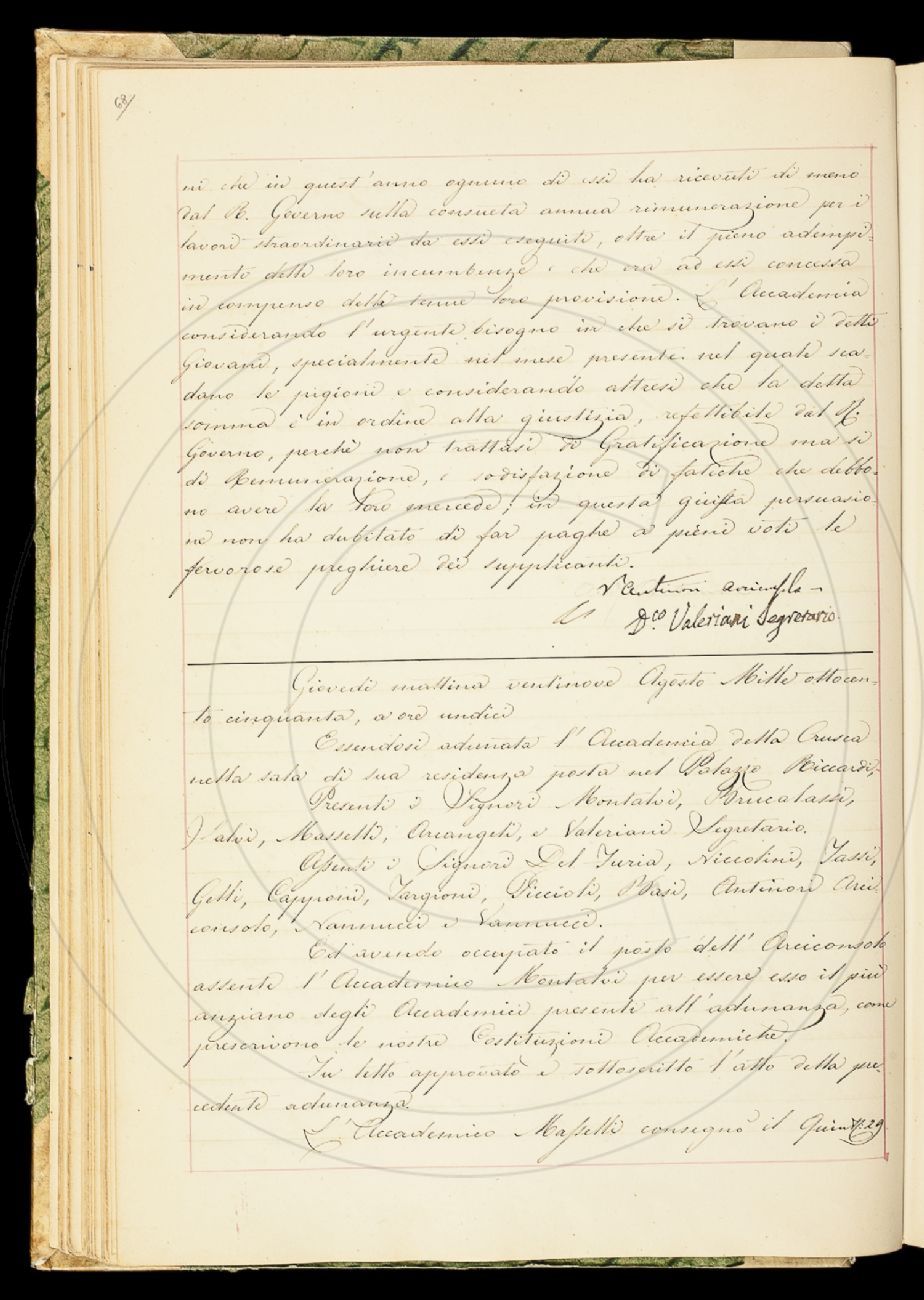 68
ni che in quest'anno ognuno di essi ha ricevuti di meno
dal R. Governo sulla consueta annua rimunerazione per i
lavori straordinarii da essi eseguiti, oltre il pieno adempi=
mento delle loro incumbenze e che era ad essi concessa
in compenso della tenue loro provisione. L'Accademia
considerando l'urgente bisogno in che si trovano i detti
Giovani, specialmente nel mese presente nel quale sca-
dano le pigioni e considerando altresì che la detta
somma è in ordine alla giustizia, refettibile dal R.
Governo, perchè non trattasi di Gratificazione ma sì
di Remunerazione, e sodisfazione di fatiche che debbo-
no avere la loro mercede; in questa giusta persuasio-
ne non ha dubitato di far paghe a pieni voti le
fervorose preghiere dei supplicanti.
V Antinori
Dco. Valeriani Segretario.
Giovedì mattina ventinove Agosto Mille ottocen-
to cinquanta, a ore undici
Essendosi adunata l'Accademia della Crusca
nella sala di sua residenza posta nel Palazzo Riccardi,
Presenti i Signori Montalvi, Brucalassi,
Salvi, Masselli, Arcangeli, e Valeriani Segretario.
Assenti i Signori Del Furia, Niccolini, Tassi,
Gelli, Capponi, Targioni, Piccioli, Basi, Antinori Arci
consolo, Nannucci e Vannucci.
Ed avendo occupato il posto dell'Arciconsolo
assente l'Accademico Montalvi per essere esso il più
anziano degli Accademici presenti all'adunanza, come
prescrivono le nostre Costituzioni Accademiche.
Fu letto approvato e sottoscritto l'atto della pre-
cedente adunanza.
L'Accademico Masselli consegnò il Quin N. 29